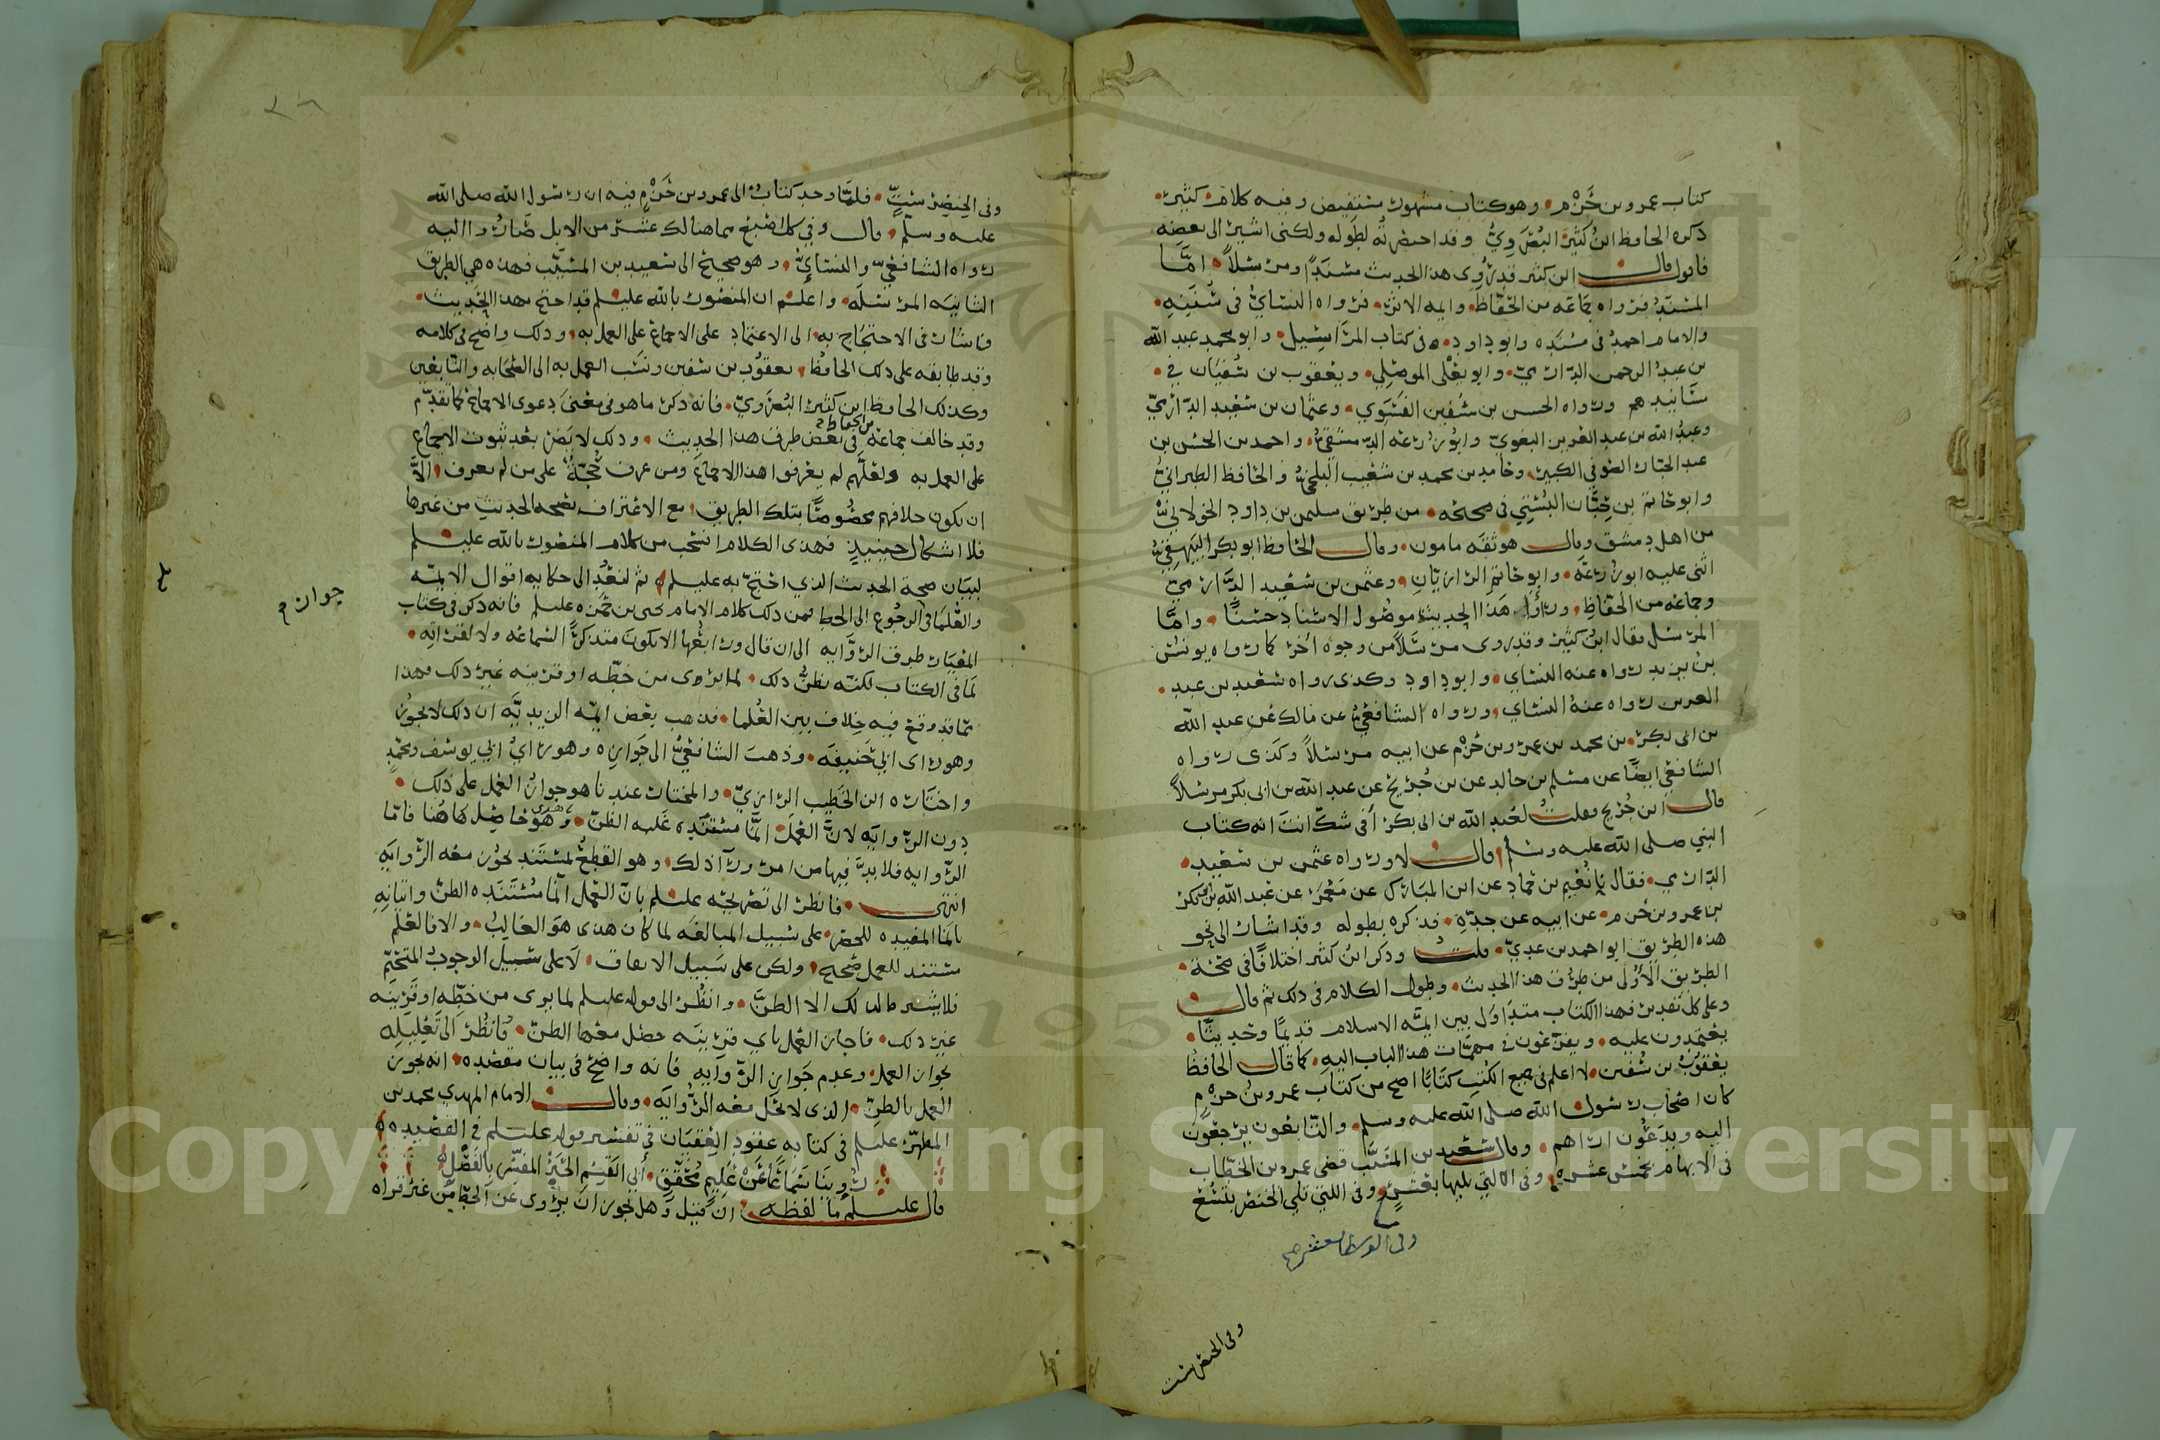 كتاب عمرو بن حَزْم وهو كتاب مشهور مستفيض وفيه كلام كثير
ذكره الحافظ ابن كثير البُصْرَوِيّ وقد احضرته لطوله ولكني اشير الى بعضه
فاقول قال ابن كثير قد رُوِى هذا الحديث مسنَدًا ومرسَلاً امَّا
المسنَدُ فرواه جماعه من الحفاظ وايمه الاثر فرواه النسائي في سُنَنِهِ
والامام احمد في مسنده وابو داود في كتاب المراسيل وابو محمد عبد الله
بن عبد الرحمن الدارميّ وابو يَعْلى الموصلي ويعقوب بن سُفيَان في
مسانيدهم ورواه الحسن بن سُفين الفَسَوي وعثمان بن سعيد الدّارميّ
وعبد الله بن عبد العزيز البغويّ وابو زرعه الدمشقيّ واحمد بن الحسن بن
عبد الجبار الصوفي الكبير وحامد بن محمد بن شعيب البلخيّ والحافظ الطبرانيّ
وابو حاتم بن حِبَّان البُسْتِي في صحيحه من طريق سليمن بن داود الخولانيّ
من اهل دمشق وقال هو ثقه مامون وقال الحافظ ابو بكر البيهقيّ
اثنى عليه ابو زرعَه وابو حَاتم الرازيّانِ وعثمن بن سَعيد الدَّارميّ
وجماعه من الحفاظِ وراَوا هَذا الحديث موصُول الاسناد حسَنًا وامَّا
المرسَل فقال ابن كثير وقد روى مرسَلاً من وجوه اخر كما رواه يونسُ
بن يزيد رواه عنه النسَاي وابو داود وكذى رواه سَعيد بن عبد
العزيز رواه عنهُ النسَاي ورواه الشافعيّ عن مَالك عَن عبد الله
بن ابى بكر بن محمد بن عمرو بن حَزْم عن ابيه مرسَلاً وكَذى رواه
الشافعي ايضًا عن مسْلم بن خالد عن بن جُرَيْج عن عبد الله بن ابى بكر مرسَلاً
قال ابن جُرَيج وقلتُ لعَبد الله بن ابى بكر أفي شكٍ انتَ انه كتاب
النبي صلى الله عليه وسلم قال لا ورواه عثمن بن سَعيد
الدّارمي فقال نا نُعَيم بن حماد عن ابن المبَارك عن مَعْمَر عن عَبد الله بن ابى بكر
بن عمرو بن حَزم عن ابيه عن جدّهِ فذكره بطوله وقد اشار الى نحو
هذه الطريق ابو احمد بن عديّ قلتُ وذكر ابنُ كثير اختلافًا في صحَّة
الطريق الاُوْلى من طرق هذا الحديث وطول الكلام في ذلك ثم قال
وعلى كل تقدير فهذا الكتاب متدَاوَل بين ايمَّه الاسلام قديمًا وحَديثًا
يعتمدون عليه ويفزَعُون في مهمّات هذا الباب اليه كما قال الحافظ
يعقوب بن سُفين لا اعلم في جميع الكتب كتَابًا اصح من كتاب عمرو بن حزم
كان اصحَاب رسول الله صلى الله عليه وسلم والتّابعون يرجعُون
اليه ويدَعُون اراهم وقال سَعْيد بن المسَيَّب قضى عمر بن الخطّاب
في الابهام بخمس عشره وفي التي تليها بعَشر وفي التي تلي الخنصر بتسْع
وفى الوسطا بعشر صح
وفى الخنصر بست
وفى الخِنصِر بسِتٍّ فلمَّا وجد كتابُ ال عمرو بن حَزْم فيه ان رسُول الله صلى الله
عليه وسلم قال وفي كل اصْبع مما هنالك عَشْرٌ من الابل صَارُوا اليه
رواه الشافعيّ والنسَايّ وهو صحيح الى سَعيد بن المسَيّب فهذه هي الطريق
الثانيَه المرسَلَه واعلم ان المنصُور بالله عليلم قد احتج بهذا الحَديث
فاشار في الاحتجَاج به الى الاعتمادِ على الاجماع على العمل به وذلك واضح في كلامه
وقد طابقه على ذلك الحافظُ يعقوب بن سُفين ونَسَب العمل به الى الصّحَابه والتابعين
وكذلك الحافظ ابن كثير البُصْرَويّ فانه ذكر ما هو في معنى دعوى الاجماع كما تقدّم
وقد خالف جماعَة من الحفاظ في بعض طرق هذا الحديث وذلك لا يَضر بعْد ثبوت الاجماع
على العمل به ولعلّهم لم يعرفوا هذا الاجماعَ ومن عرف حُجّةٌ على من لم يعرف الاَّ
ان يكون خلافهم مخصُوصًا بتلك الطريق مع الاعتراف بصحه الحديث من غيرها
فلا اشكال حينيذٍ فهذى الكلام انسَحَب من كلام المنصُور بالله عليلم
لبَيان صحة الحديث الذي احتجّ به عليلم ثم لنَعُدْ الى حكايه اقوال الايمَّه
والعُلمَا في الرجُوع الى الخط فمن ذلك كلام الامام يحيى بن حمزه عليلم فانه ذكر في كتاب
جواز م
المعيَار طرق الرّوَايه الى ان قال ورابعُها الا يكونَ متذكرًا لسَماعَه ولا لقراتِه
لمَا في الكتاب لكنّه يظنُّ ذلك لما يرى من خطّه او قرينه غير ذلك فهذا
مما قد وقع فيه خِلاف بين العُلما فذهب بعْض ايمّه الزيديَّه ان ذلك لا يجوز
وهو راى ابي حَنيفَه وذهبَ الشافعيّ الى جَوازه وهو راىُ ابي يوسُف ومحمّدٍ
واختَاره ابن الخَطيب الرازيّ والمختَار عندنا هو جوازُ العَمل على ذلك
دون الرّوايه لانَّ العَمَلَ انّما مستنَدِه غَلبه الظنّ وهذى هُو حَاصِل هَاهُنا فامّا
الرّوايه فلا بدَّ فيها من امر ورآ ذلك وهو القَطع بمستَند يجوز معه الرّوايَه
انتهى فانظر الى تصْريحه عليلم بانّ العَمل انّما مُسْتَنَده الظنّ واتيانِهِ
بانّما المفيده للحصر على سَبيل المبَالغَه لما كان هذى هوَ الغَالبُ والا فالعِلم
مستند للعمل صَحيح ولكن على سَبيل الاتفاق لا على سَبيل الوجوب المتحَتِّم
غير ذلك فاجاز العَمل باي قرينَه حصَل معَها الظنّ فَانْظُر الى تَعْليلِه
بجواز العمل وعدم جَواز الرّوَايه فَانه واضِح فى بيان مقصَده انه يجوز
العمل بالظنّ الذى لا تحل معَه الرّوَايَة وقال الامام المهدي محمد بن
المطهّر عليلم في كتابه عقود العِقيَان في تفسير قوله عليلم في القصيده
رُوِينَا سَمَاعًا عَنْ عَلِيمٍ مُحَقّق أبي القَسِم الحَبْر المفسّر بِالفَضْلِ
قال عليلم ما لفظه ان قيل وَهَل يجوز ان يَرْوى عَن الخطّ من غير قراه